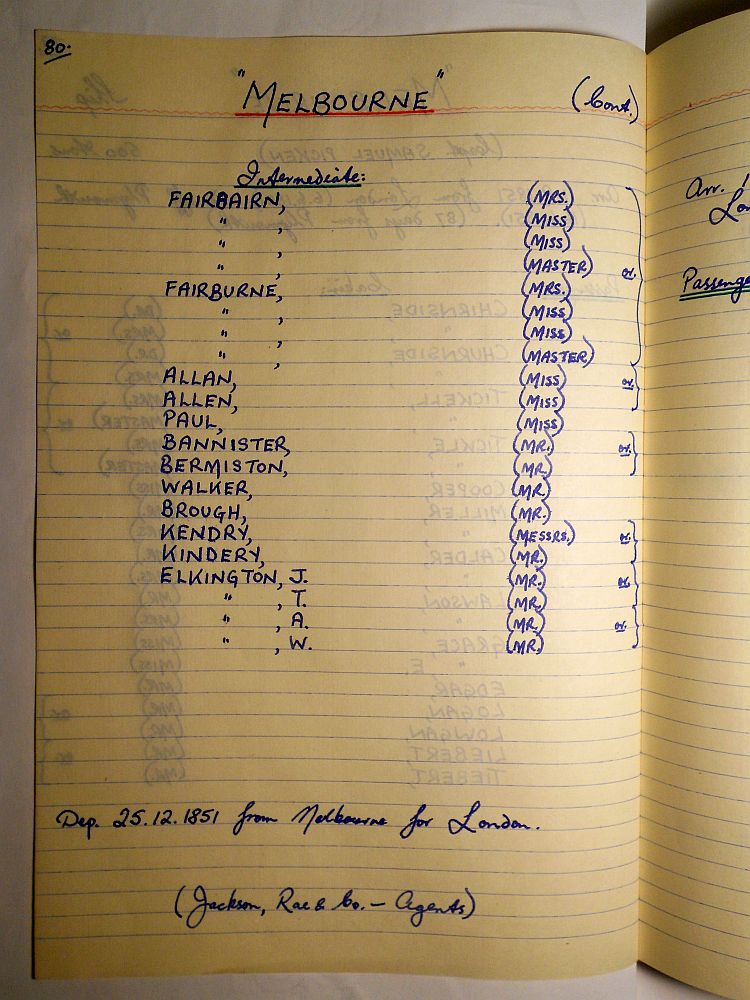 80.
"MELBOURNE" (Cont.)
Intermediate:
FAIRBAIRN, (MRS.)
" , (MISS)
" , (MISS)
" , (MASTER) or.
FAIRBURNE, (MRS.)
" , (MISS)
" , (MISS)
" , (MASTER)
ALLAN, (MISS) or.
ALLEN, (MISS)
PAUL, (MISS)
BANNISTER, (MR.) or.
BERMISTON, (MR.)
WALKER, (MR.)
BROUGH, (MR.)
KENDRY, (MESSRS.) or.
KINDERY, (MR.)
ELKINGTON, J. (MR.) or.
" , T. (MR.)
" , A. (MR.) or.
" , W. (MR.)
Dep. 25.12.1851 from Melbourne for London.
(Jackson, Rae & Co. - Agents)
Arr.
Lo
Passenge